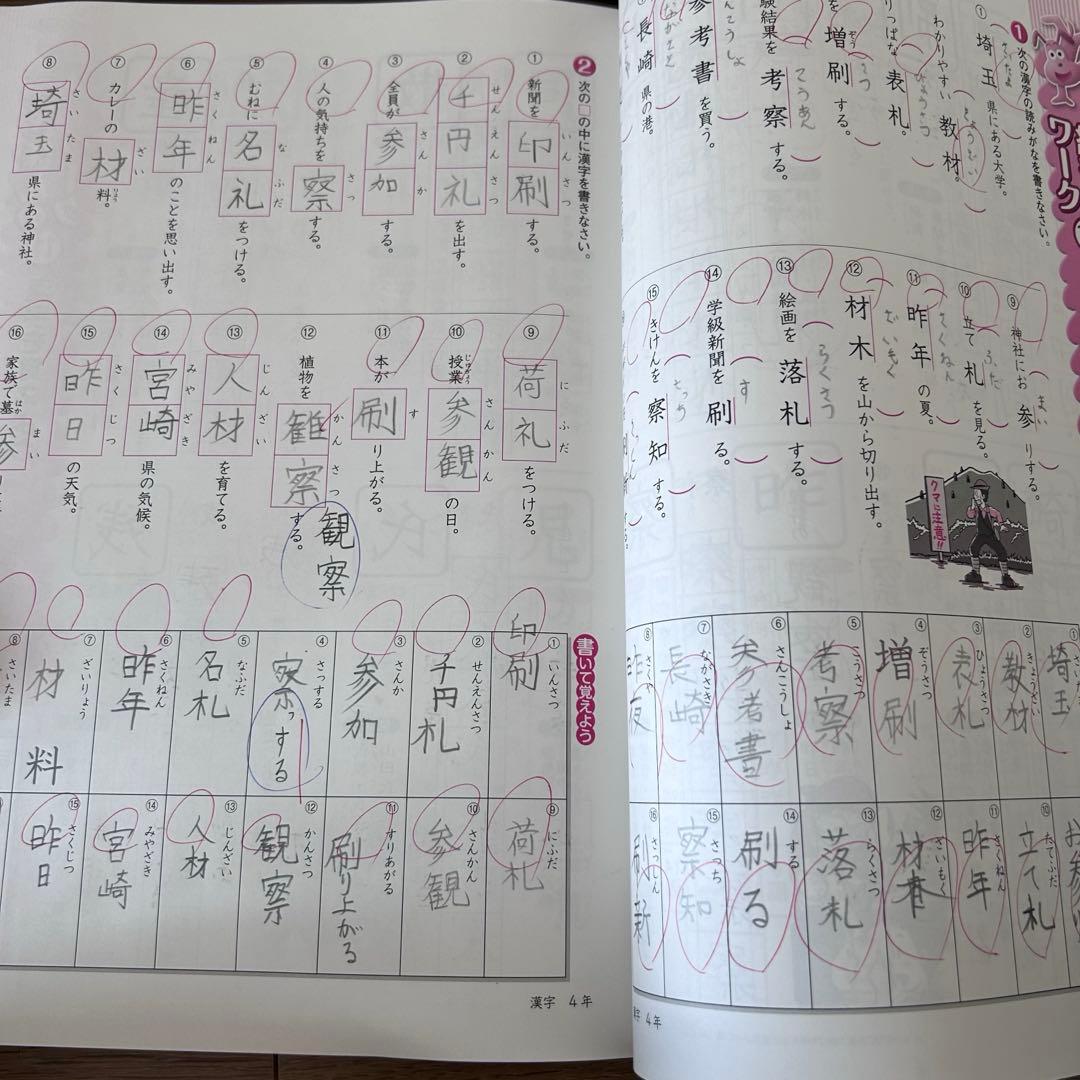 ワーク
1 次の漢字の読みがなを書きなさい。
① 埼玉県にある大学。
わかりやすい教材。
りっぱな表札。
を増刷する。
験結果を考察する。
参考書を買う。
長崎県の港。
⑨ 神社にお参りする。
まい
⑩ 立て札を見る。
ふだ
⑪ 昨年の夏。
さくねん
⑫ 材木を山から切り出す。
ざいもく
⑬ 絵画を落札する。
らくさつ
⑭ 学級新聞を刷る。
す
⑮ きけんを察知する。
さっち
クマに注意!!
① 埼玉
② きょうざい 教材
③ ひょうさつ 表札
④ ぞうさつ 増刷
⑤ こうさつ 考察
⑥ さんこうしょ 参考書
⑦ ながさき 長崎
⑧ 昨夜
⑩ たてふだ 立て札
⑪ さくねん 昨年
⑫ ざいもく 材木
⑬ らくさつ 落札
⑭ する 刷る
⑮ さっち 察知
⑯ さっしん 刷新
漢字 4年
2 次の□の中に漢字を書きなさい。
① 新聞を印刷する。
いんさつ
② 千円礼を出す。
せんえんさつ
③ 全員が参加する。
さんか
④ 人の気持ちを察する。
さっ
⑤ むねに名礼をつける。
なふだ
⑥ 昨年のことを思い出す。
さくねん
⑦ カレーの材料。
ざい りょう
⑧ 埼玉県にある神社。
さいたま
⑨ 荷礼をつける。
にふだ
⑩ 授業参観の日。
じゅぎょう さんかん
⑪ 本が刷り上がる。
す
⑫ 植物を観察する。
かんさつ
観察
⑬ 人材を育てる。
じんざい
⑭ 宮崎県の気候。
みやざき
⑮ 昨日の天気。
さくじつ
⑯ 家族で墓参
はか まい
書いて覚えよう
① いんさつ 印刷
② せんえんさつ 千円札
③ さんか 参加
④ さっする 察っする
⑤ なふだ 名札
⑥ さくねん 昨年
⑦ ざいりょう 材料
⑧ さいたま
⑨ にふだ 荷札
⑩ さんかん 参観
⑪ すりあがる 刷り上がる
⑫ かんさつ 観察
⑬ じんざい 人材
⑭ みやざき 宮崎
⑮ さくじつ 昨日
漢字 4年